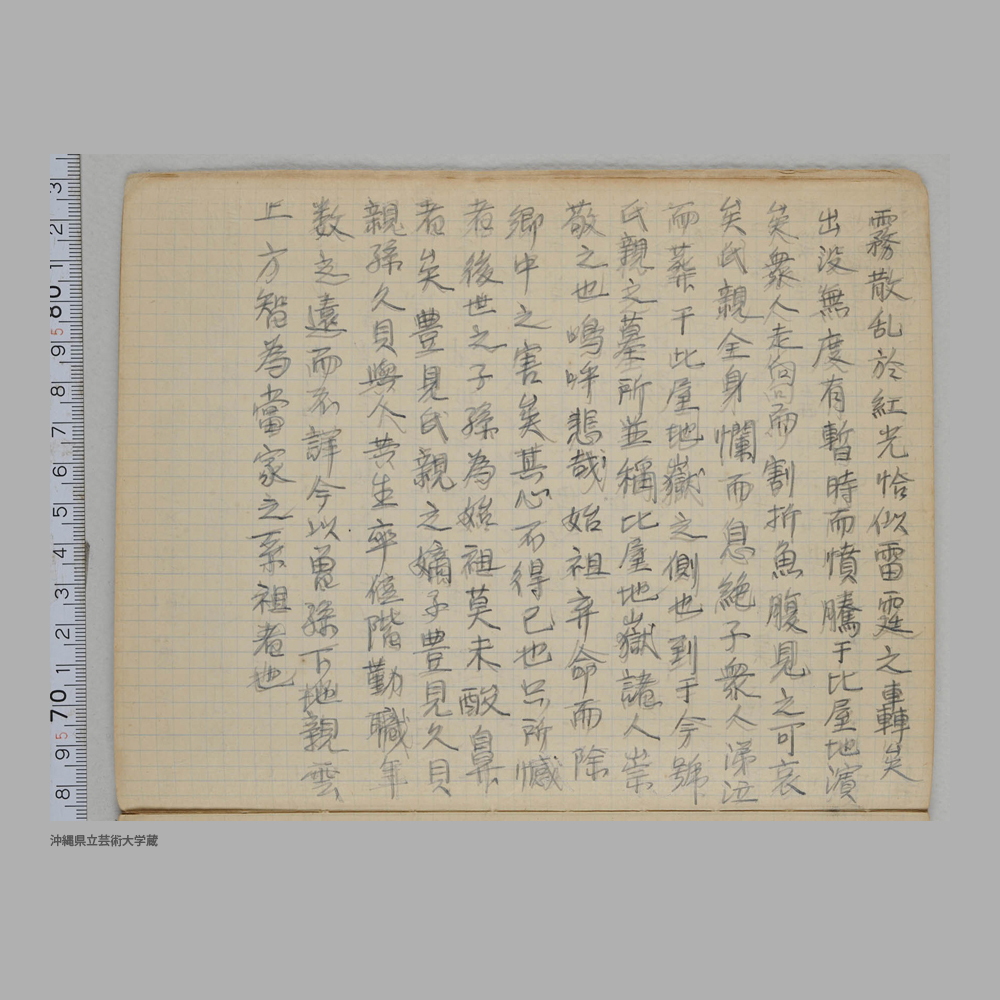 霧散乱於紅光恰似雷霆之轟轟矣
出没無度有暫時而憤騰于比屋地濱
矣衆人走向而割折魚腹見之可哀
矣氏親全身爛而息絶子衆人涕泣
而葬于此屋地嶽之側也到于今號
氏親之墓所並稱比屋地嶽諸人崇
敬之也嗚呼悲哉始祖弃命而除
郷中之害矣其心不得已也只所憾
者後世之子孫為始祖莫未酸鼻
者矣豊見氏親之嫡子豊見久貝
親孫久貝與人苦生卒値階勤職年
数之遠而不詳今以曽孫下地親雲
上方智為當家之系祖者也
沖縄県立芸術大学蔵